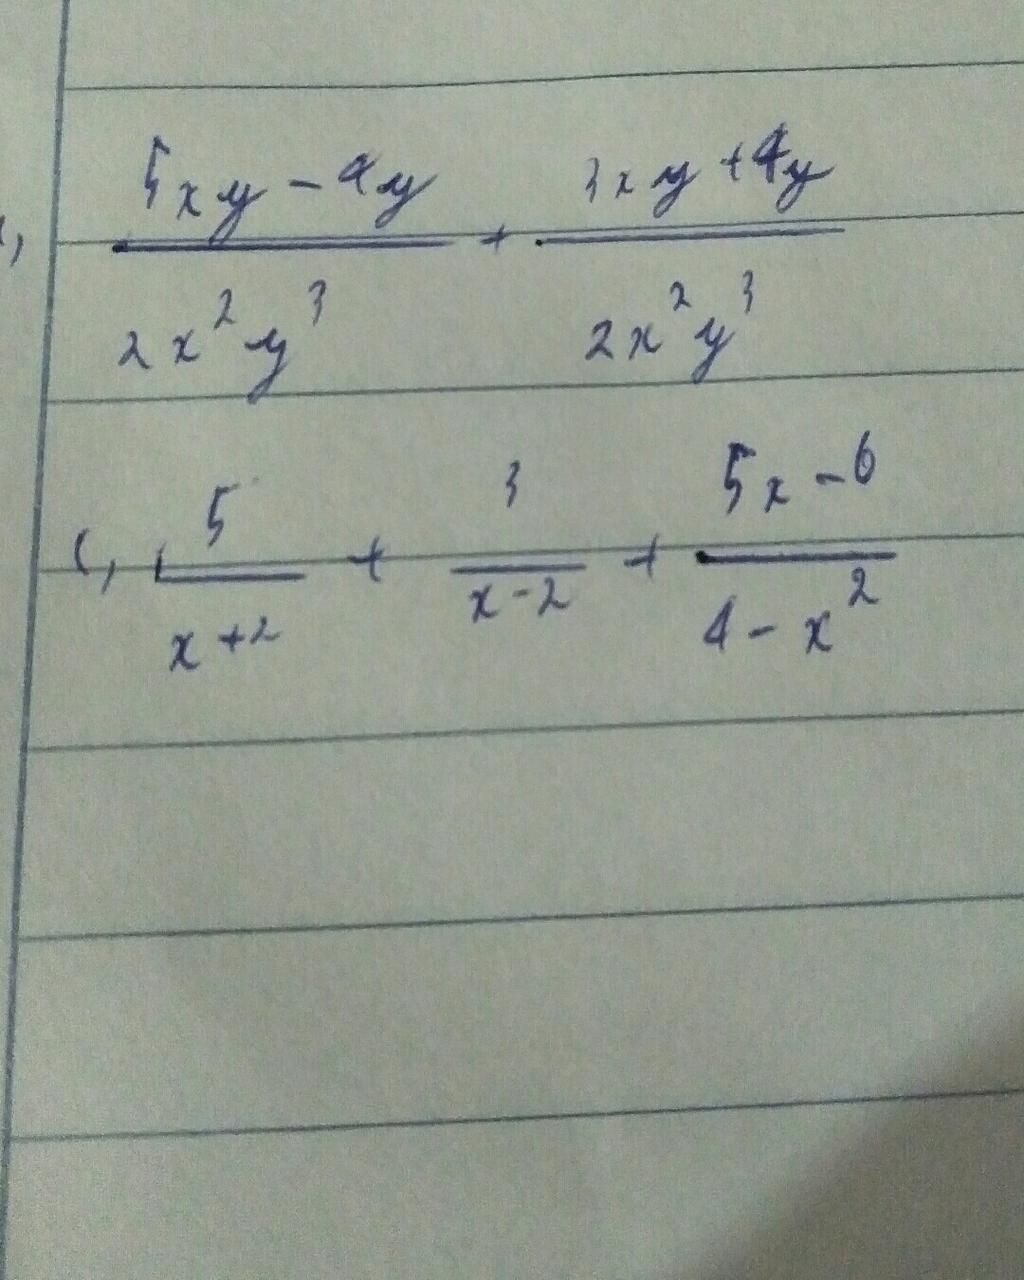 5xy - 4y / 2x²y³ + 3xy + 4y / 2x²y³
c, 5 / x + 2 + 3 / x - 2 + 5x - 6 / 4 - x²